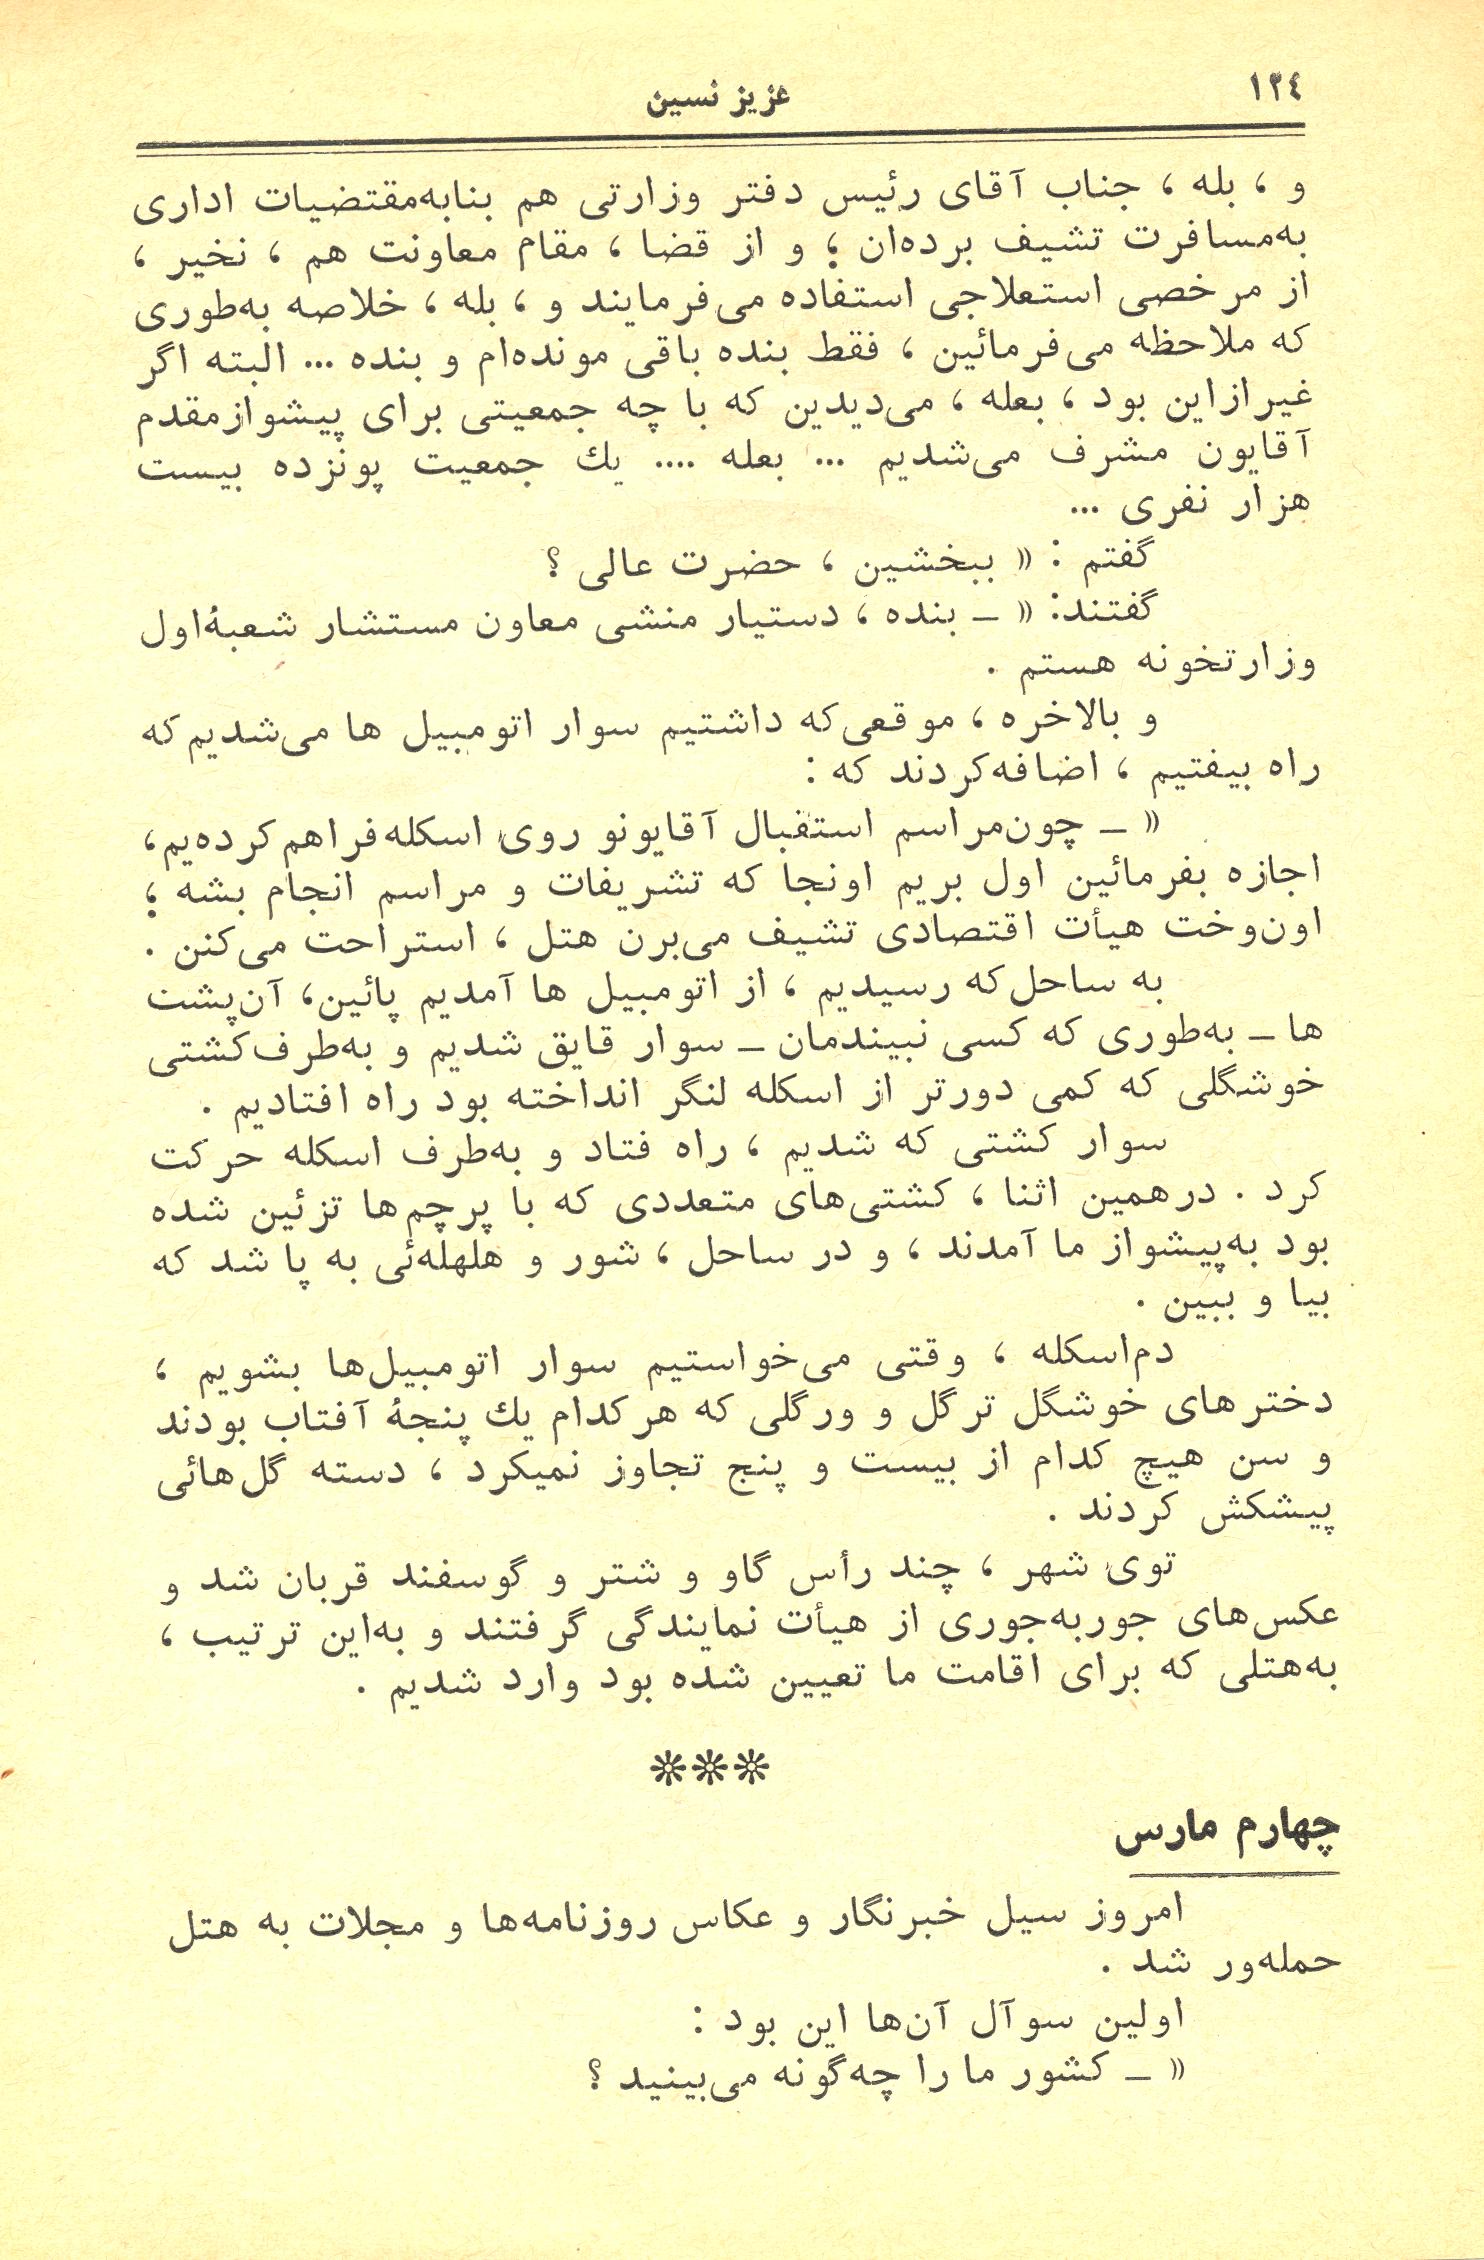 ۱۲٤
عزیز نسین
و ، بله ، جناب آقای رئیس دفتر وزارتی هم بنابه‌مقتضیات اداری
به‌مسافرت تشیف برده‌ان ؛ و از قضا ، مقام معاونت هم ، نخیر ،
از مرخصی استعلاجی استفاده می‌فرمایند و ، بله ، خلاصه به‌طوری
که ملاحظه می‌فرمائین ، فقط بنده باقی مونده‌ام و بنده ... البته اگر
غیرازاین بود ، بعله ، می‌دیدین که با چه جمعیتی برای پیشوازمقدم
آقایون مشرف می‌شدیم ... بعله .... یك جمعیت پونزده بیست
هزار نفری ...
گفتم : « ببخشین ، حضرت عالی ؟
گفتند: « ـ بنده ، دستیار منشی معاون مستشار شعبهٔ‌اول
وزارتخونه هستم .
و بالاخره ، موقعی‌که داشتیم سوار اتومبیل ها می‌شدیم‌که
راه بیفتیم ، اضافه‌کردند که :
« ـ چون‌مراسم استقبال آقایونو روی اسکله‌فراهم‌کرده‌یم،
اجازه بفرمائین اول بریم اونجا که تشریفات و مراسم انجام بشه ؛
اون‌وخت هیأت اقتصادی تشیف می‌برن هتل ، استراحت می‌کنن .
به ساحل‌که رسیدیم ، از اتومبیل ها آمدیم پائین، آن‌پشت
ها ـ به‌طوری که کسی نبیندمان ـ سوار قایق شدیم و به‌طرف‌کشتی
خوشگلی که کمی دورتر از اسکله لنگر انداخته بود راه افتادیم .
سوار کشتی که شدیم ، راه فتاد و به‌طرف اسکله حرکت
کرد . درهمین اثنا ، کشتی‌های متعددی که با پرچم‌ها تزئین شده
بود به‌پیشواز ما آمدند ، و در ساحل ، شور و هلهله‌ئی به پا شد که
بیا و ببین .
دم‌اسکله ، وقتی می‌خواستیم سوار اتومبیل‌ها بشویم ،
دخترهای خوشگل ترگل و ورگلی که هرکدام یك پنجهٔ آفتاب بودند
و سن هیچ کدام از بیست و پنج تجاوز نمیکرد ، دسته گل‌هائی
پیشکش کردند .
توی شهر ، چند رأس گاو و شتر و گوسفند قربان شد و
عکس‌های جوربه‌جوری از هیأت نمایندگی گرفتند و به‌این ترتیب ،
به‌هتلی که برای اقامت ما تعیین شده بود وارد شدیم .
***
چهارم مارس
امروز سیل خبرنگار و عکاس روزنامه‌ها و مجلات به هتل
حمله‌ور شد .
اولین سوآل آن‌ها این بود :
« ـ کشور ما را چه‌گونه می‌بینید ؟